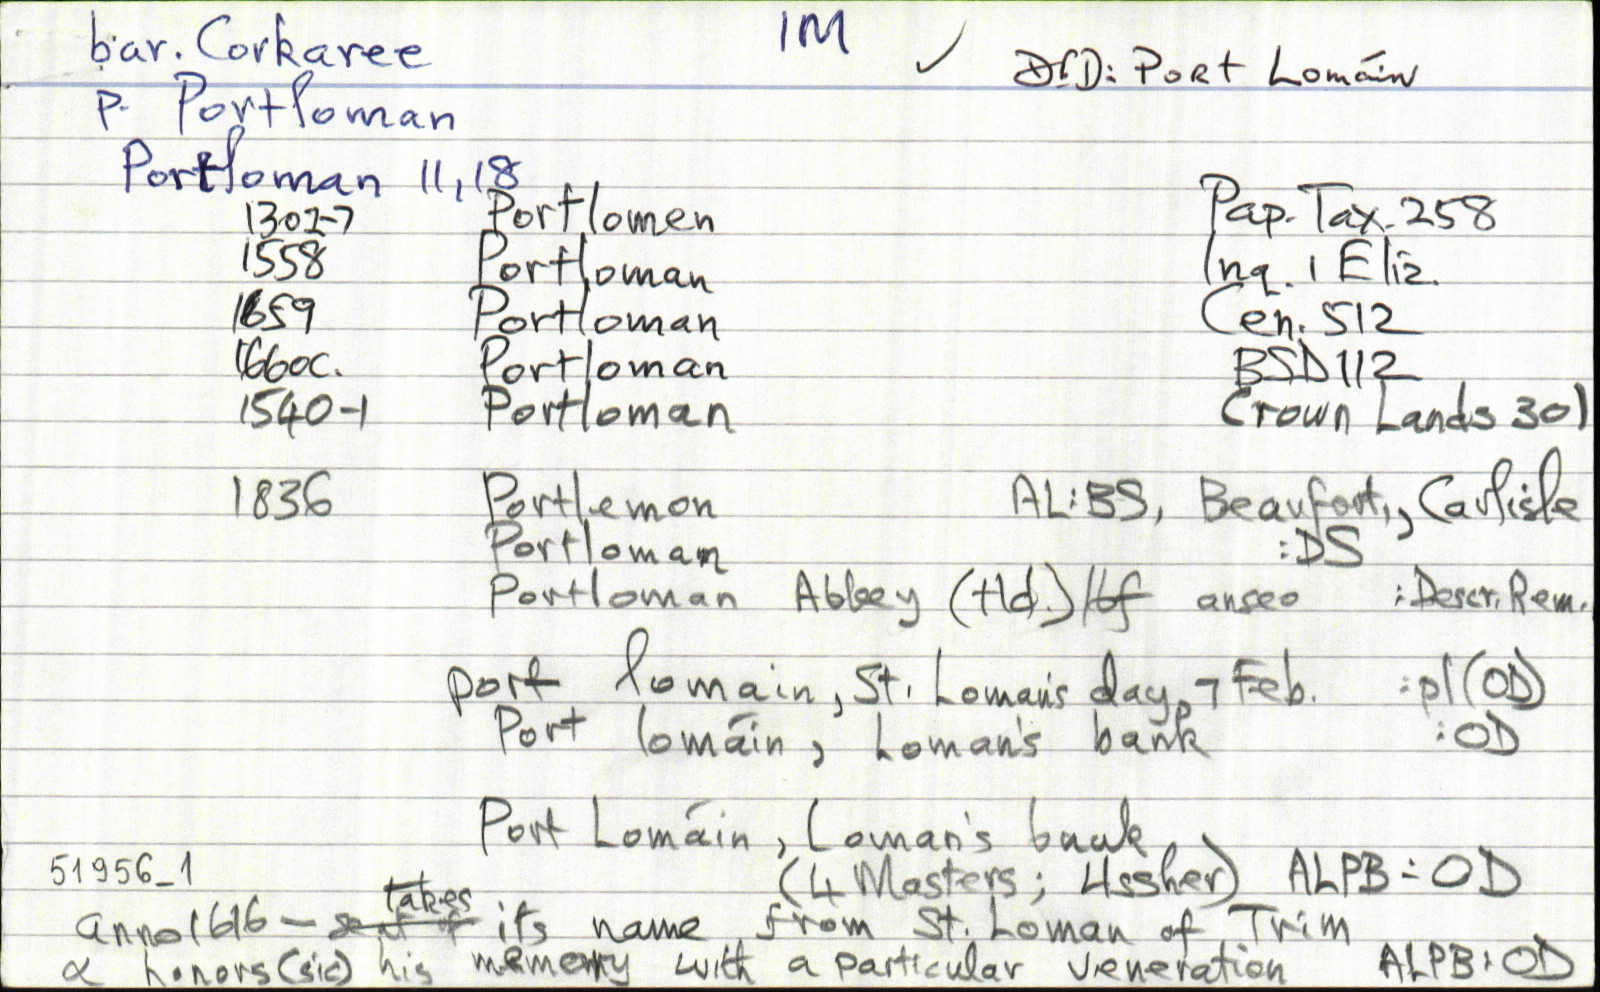 bar. Corkaree IM ✓ DÉD: Port Lomáin
p. Portloman
Portloman 11, 18
1302-7 Portlomen Pap. Tax. 258
1558 Portloman Inq. 1 Eliz.
1659 Portloman Cen. 512
1660c. Portloman BSD 112
1540-1 Portloman Crown Lands 301
1836 Portlemon AL:BS, Beaufort, Carlisle
Portloman :DS
Portloman Abbey (tld.) anseo :Descr. Rem.
port lomain, St. Loman's day, 7 Feb. :pl (OD)
Port lomáin, Loman's bank :OD
Port Lomáin, Loman's bank
51956_1 (4 Masters; Ussher) ALPB:OD
anno 1616 – takes its name from St. Loman of Trim
& honors (sic) his memory with a particular veneration ALPB:OD